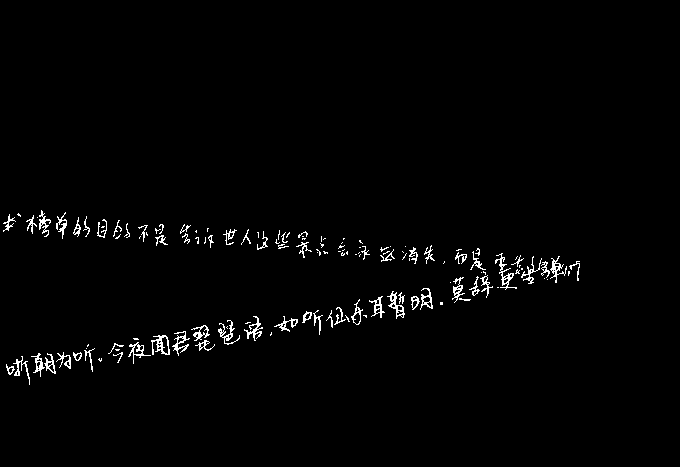 榜单的目的不是告诉世人这些景点会永远消失,而是
嘲哳为听。今夜闻君琵琶语,如听仙乐耳暂明。莫辞更坐弹